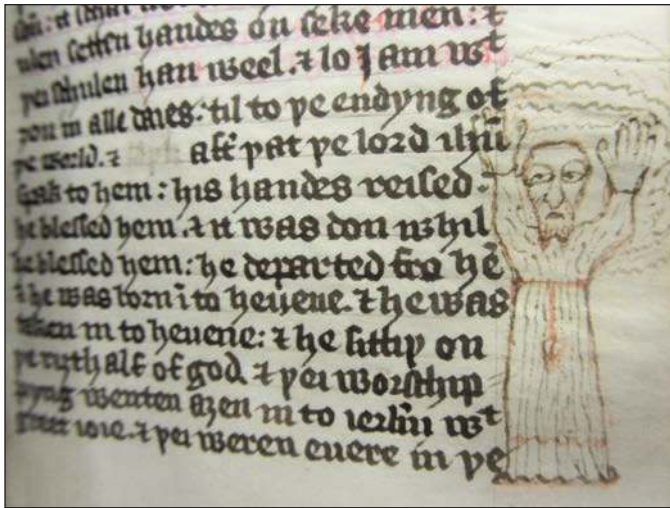 handes on seke men: ⁊
schulen han weel. ⁊ lo J am wᵗ
ȝou in alle daies: til to þe endyng of
þe world. ⁊ aft̄ þat þe lord ih̄u
spak to hem: his handes reised.
he blessed hem. ⁊ it was don whil
he blessed hem: he departed fro hē
⁊ he was born ī to heuene. ⁊ he was
taken in to heuene: ⁊ he sittiþ on
þe riȝth alf of god. ⁊ þei worschip
pyng wenten aȝen in to ierl̄m wᵗ
greet ioie. ⁊ þei weren euere in þe